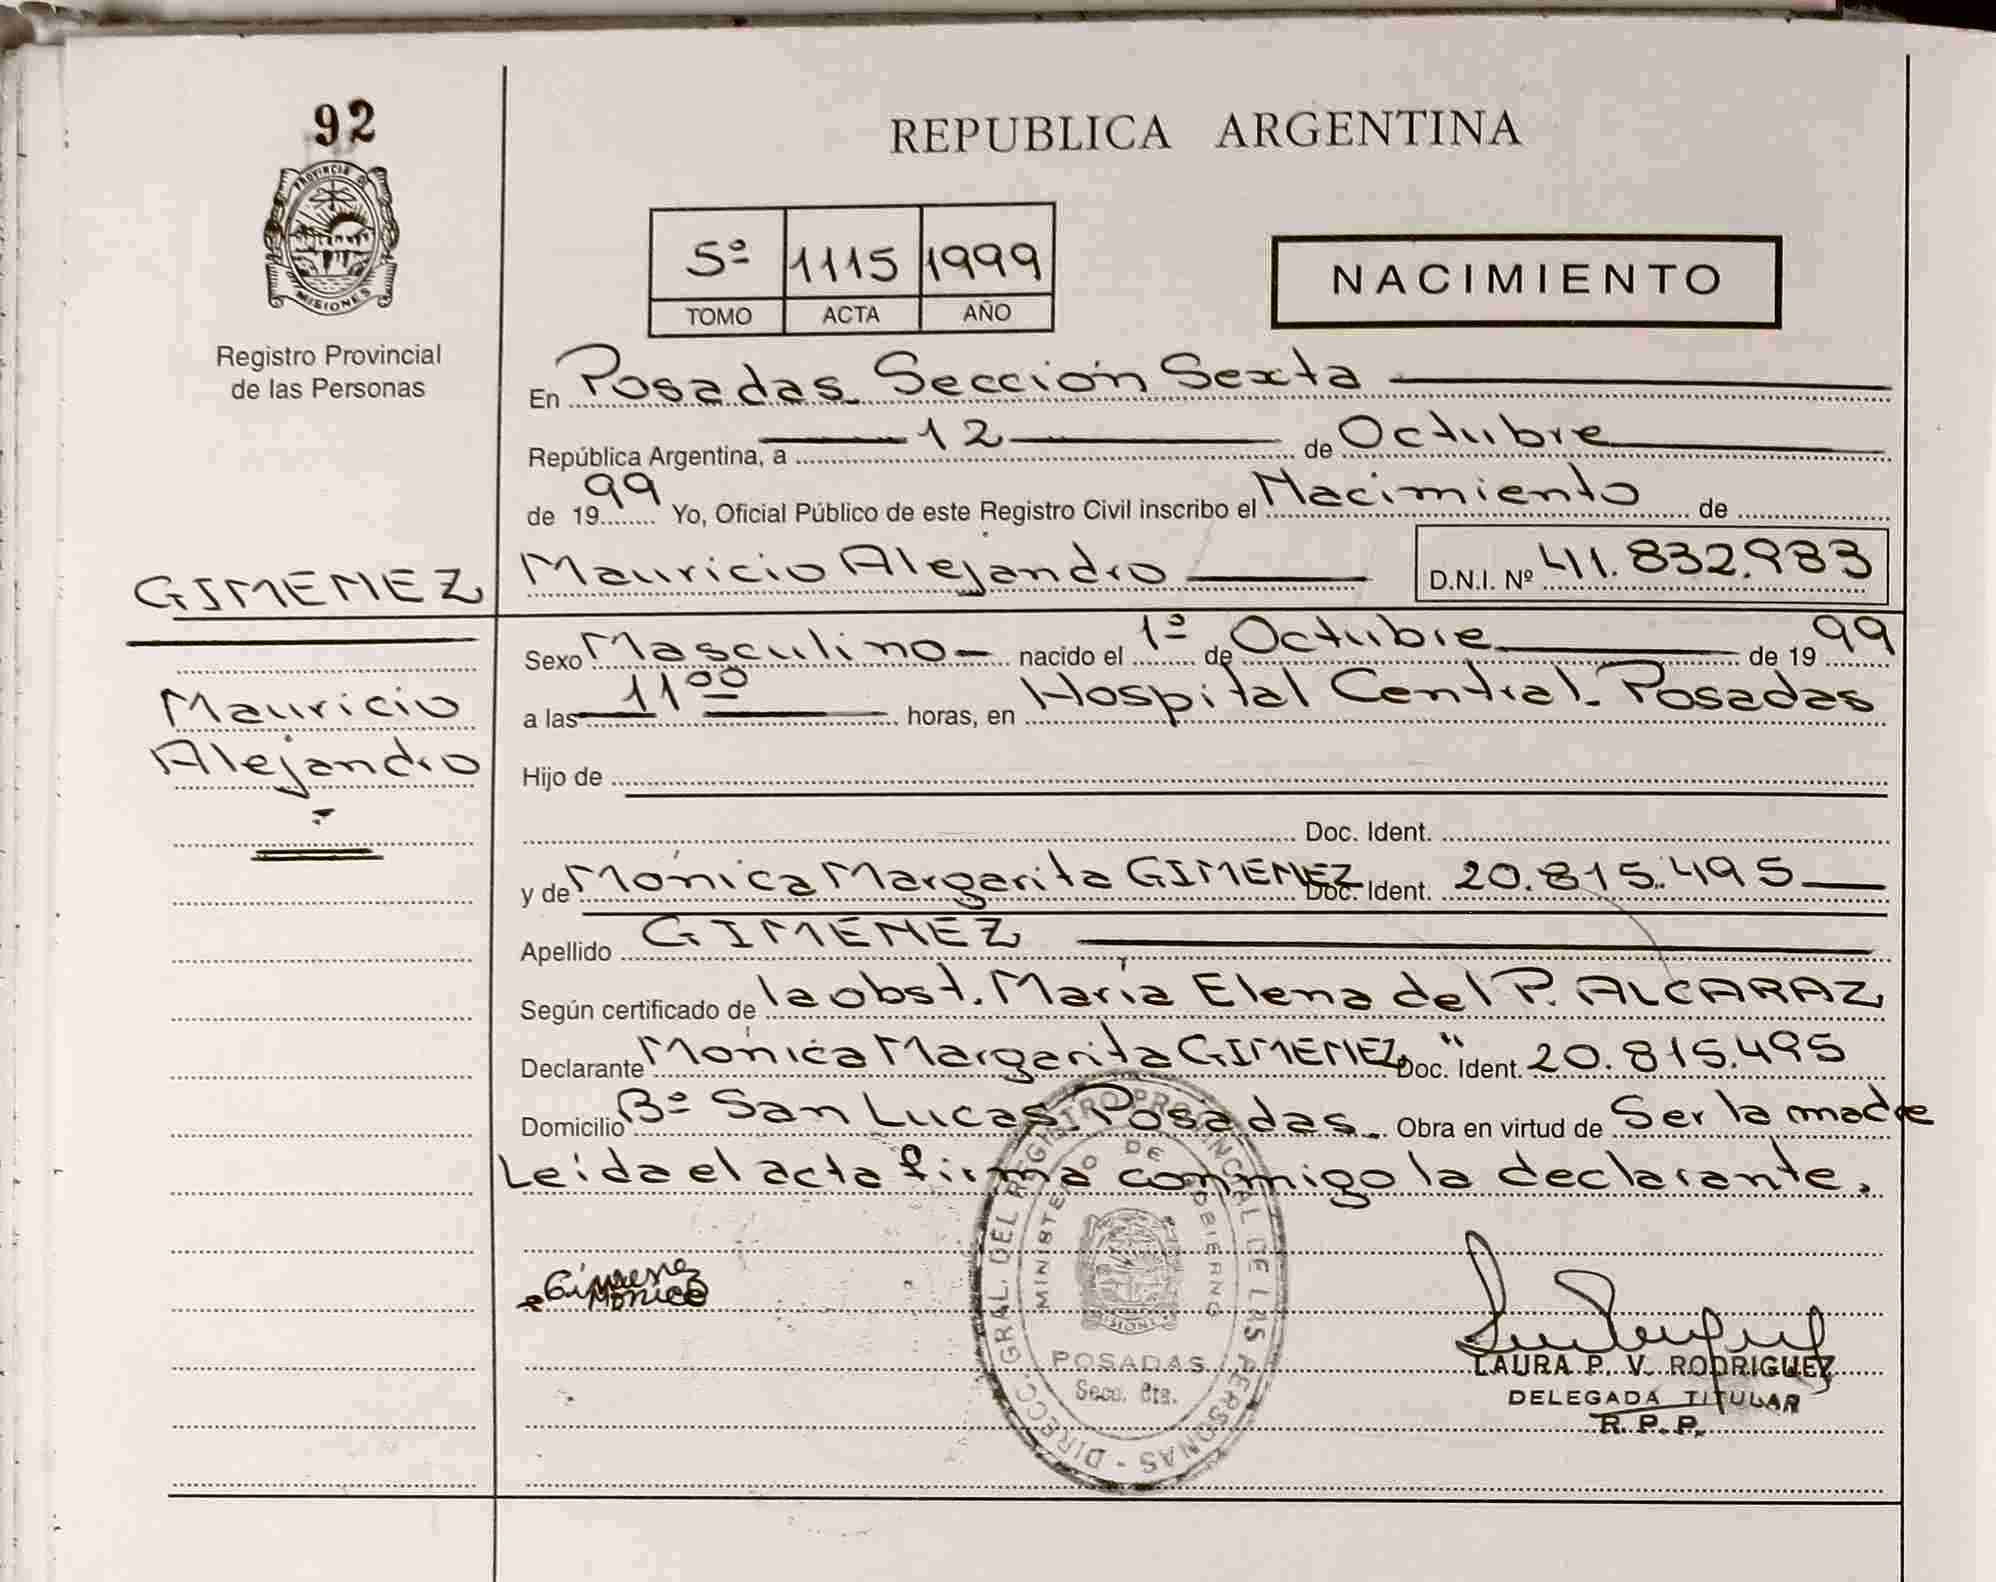 92
PROVINCIA DE
MISIONES
Registro Provincial
de las Personas
REPUBLICA ARGENTINA
5º 1115 1999
TOMO ACTA AÑO
NACIMIENTO
En Posadas Sección Sexta
República Argentina, a 12 de Octubre
de 1999 Yo, Oficial Público de este Registro Civil inscribo el Nacimiento de
Mauricio Alejandro D.N.I. Nº 41.832.983
GIMENEZ
Mauricio
Alejandro
Sexo Masculino nacido el 1º de Octubre de 1999
a las 11⁰⁰ horas, en Hospital Central - Posadas
Hijo de
Doc. Ident.
y de Mónica Margarita GIMENEZ Doc. Ident. 20.815.495
Apellido GIMENEZ
Según certificado de la obst. María Elena del P. ALCARAZ
Declarante Mónica Margarita GIMENEZ Doc. Ident. 20.815.495
Domicilio Bº San Lucas Posadas. Obra en virtud de Ser la madre
Leída el acta firma conmigo la declarante.
Gimenez
Monica
DIRECC. GRAL. DEL REGISTRO PROVINCIAL DE LAS PERSONAS -
MINISTERIO DE GOBIERNO
MISIONES
POSADAS
Secc. 6ta.
LAURA P. V. RODRIGUEZ
DELEGADA TITULAR
R. P. P.